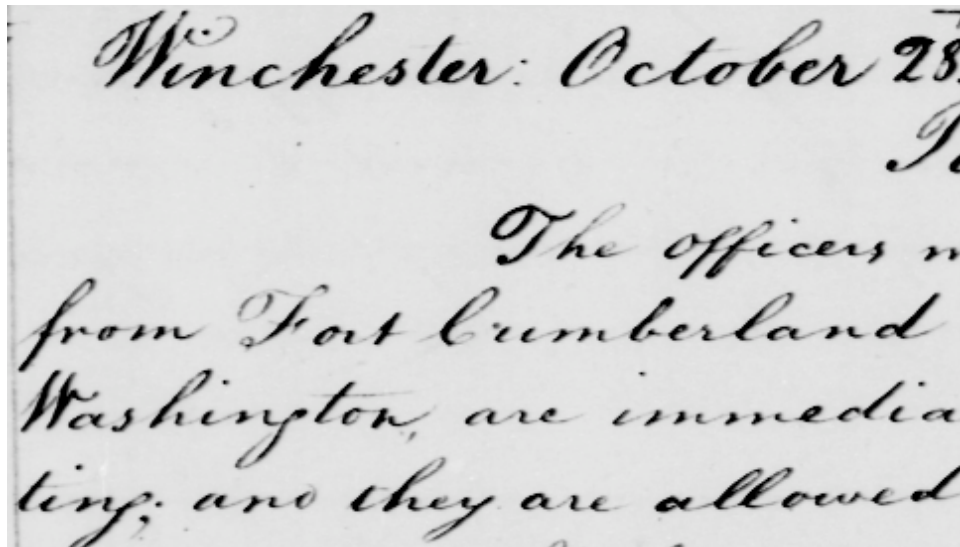 Winchester: October 28
The officers
from Fort Cumberland
Washington, are immedia
ting; and they are allowed